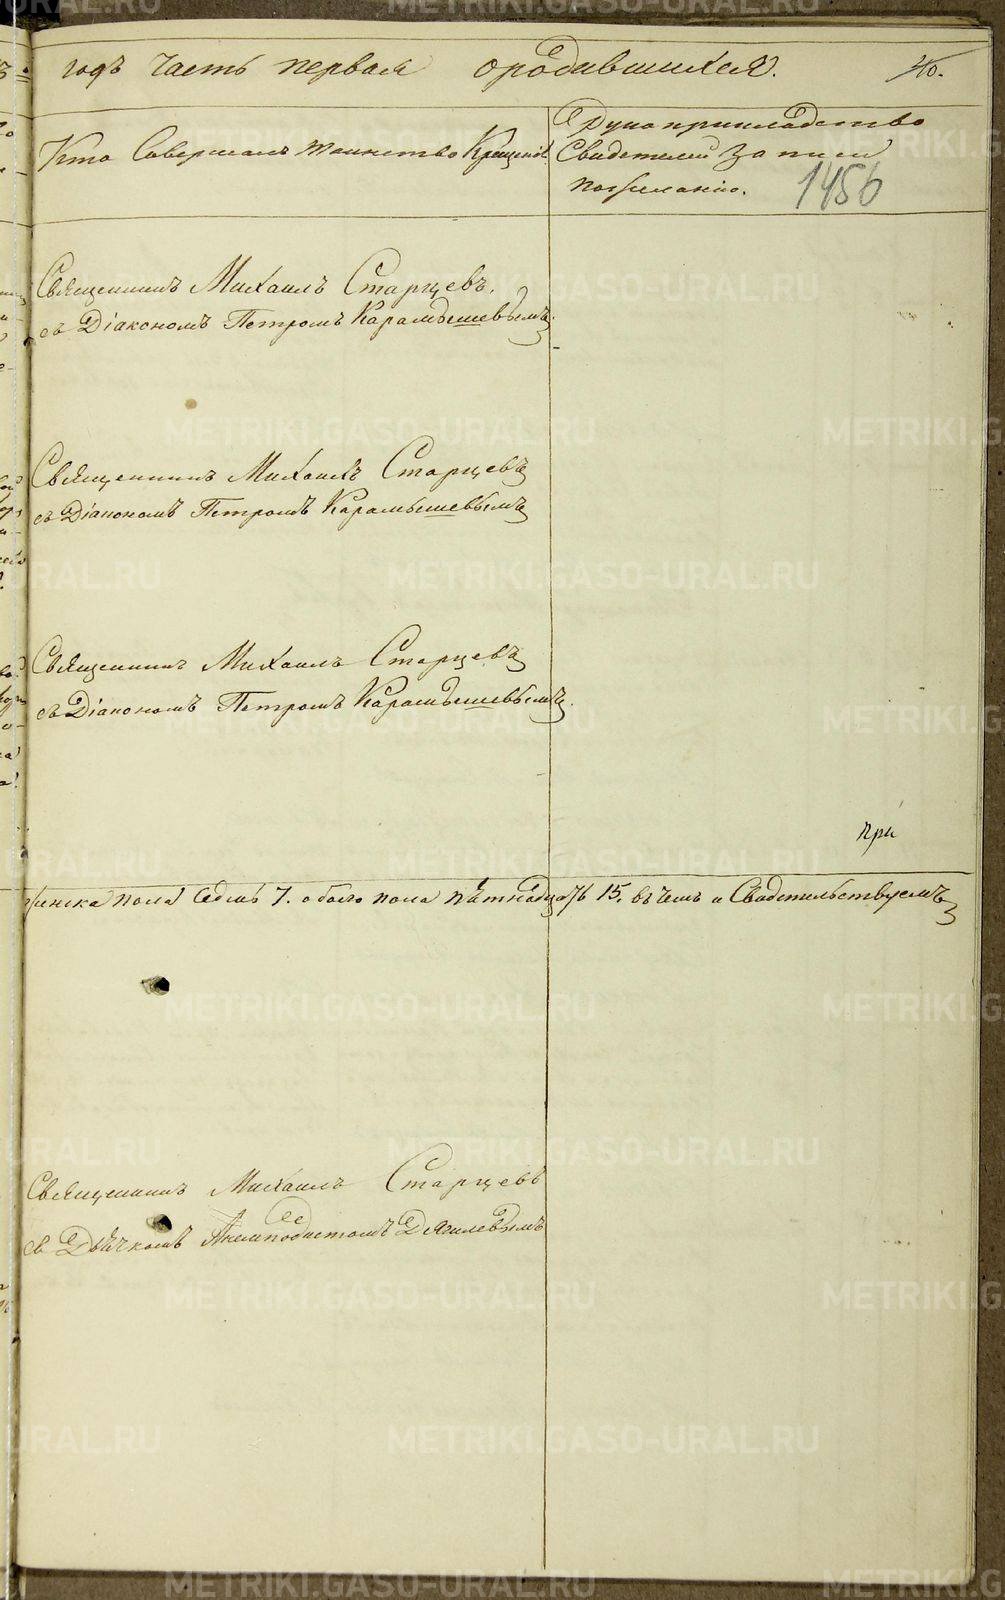 годъ часть первая о родившихся. 40.
Кто Совершалъ таинство Крещенія
Рукоприкладство
Свидетелей записи
по желанію.
1456
Священникъ Михаилъ Старцевъ.
съ Діакономъ Петромъ Карамышевымъ.
Священникъ Михаилъ Старцевъ
съ Діакономъ Петромъ Карамышевымъ
Священникъ Михаилъ Старцевъ
съ Діакономъ Петромъ Карамышевымъ.
При
женска пола седмь 7. обоего пола пятнадцать 15. въ чемъ и Свидетельствуемъ
Священникъ Михаилъ Старцевъ
съ Дьячкомъ Анемподистомъ Дягилевымъ
METRIKI.GASO-URAL.RU